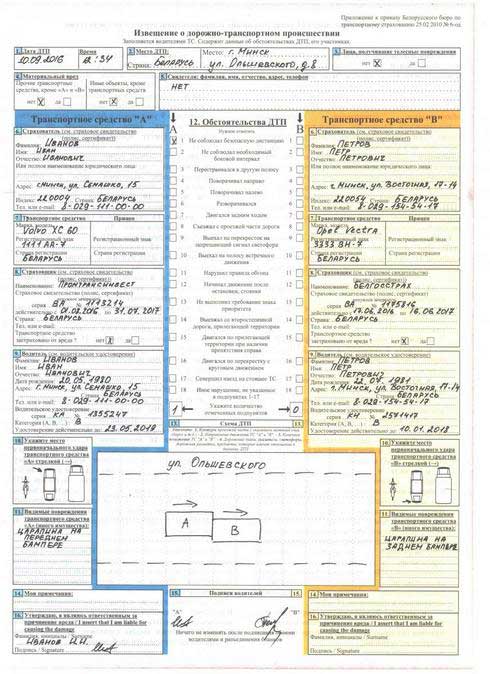 Приложение к приказу Белорусского бюро по
транспортному страхованию 25.02.2010 № 6-од
Извещение о дорожно-транспортном происшествии
Заполняется водителями ТС. Содержит данные об обстоятельствах ДТП, его участниках.
1. Дата ДТП Время
20.09.2016 12:34
2. Место ДТП: Место: г. МИНСК
Страна: БЕЛАРУСЬ ул. ОЛЬШЕВСКОГО, д.8
3. Лица, получившие телесные повреждения
нет X да
4. Материальный вред
Прочие транспортные средства, кроме «А» и «В»
Иные объекты, кроме транспортных средств
нет X да нет X да
5. Свидетели: фамилия, имя, отчество, адрес, телефон
НЕТ
Транспортное средство "А"
6. Страхователь (см. страховое свидетельство
(полис, сертификат))
Фамилия: ИВАНОВ
Имя: ИВАН
Отчество: ИВАНОВИЧ
Или полное наименование юридического лица:
Адрес: г.МИНСК, ул. СЕМАШКО, 15
Индекс: 220004 Страна: БЕЛАРУСЬ
Тел. или e-mail: 8-029-111-00-00
7. Транспортное средство Прицеп
Марка, модель
VOLVO XC 60
Регистрационный знак Регистрационный знак
1111 АА-7
Страна регистрации Страна регистрации
БЕЛАРУСЬ
8. Страховщик (см. страховое свидетельство
(полис, сертификат))
Наименование: ПРОМТРАНСИНВЕСТ
Страховое свидетельство (полис, сертификат)
серия ВА № 1113214
действительно с 01.08.2016 по 31.07.2017
Страна: БЕЛАРУСЬ
Тел. или e-mail:
Транспортное средство
застраховано от вреда? нет X да
9. Водитель (см. водительское удостоверение)
Фамилия: ИВАНОВ
Имя: ИВАН
Отчество: ИВАНОВИЧ
Дата рождения: 20.05.1980
Адрес: г. МИНСК, ул. СЕМАШКО, 15
Тел. или e-mail: 8-029-111-00-00
Водительское удостоверение
серия КА № 1355247
Категория (А, В, ) В
Удостоверение действительно до 23.05.2018
А 12. Обстоятельства ДТП В
Нужное отметить
X 1 Не соблюдал безопасную дистанцию 1
2 Не соблюдал необходимый боковой интервал 2
3 Перестраивался в другую полосу 3
4 Поворачивал направо 4
5 Поворачивал налево 5
6 Разворачивался 6
7 Двигался задним ходом 7
8 Съезжал с проезжей части дороги 8
9 Выехал на перекресток на запрещающий сигнал светофора 9
10 Выехал на полосу встречного движения 10
11 Нарушил правила обгона 11
12 Начинал движение после остановки, стоянки 12
13 Не выполнил требование знака приоритета 13
14 Выезжал со второстепенной дороги, прилегающей территории 14
15 Двигался по прилегающей территории при наличии препятствия справа 15
16 Двигался по перекрестку с круговым движением 16
17 Совершил наезд на стоящее ТС 17
18 Иное нарушение, не указанное в подпунктах 1-17 18
1 Укажите количество отмеченных подпунктов 0
Транспортное средство "В"
6. Страхователь (см. страховое свидетельство
(полис, сертификат))
Фамилия: ПЕТРОВ
Имя: ПЕТР
Отчество: ПЕТРОВИЧ
Или полное наименование юридического лица:
Адрес: г. МИНСК, ул. ВОСТОЧНАЯ, 17-14
Индекс: 220054 Страна: БЕЛАРУСЬ
Тел. или e-mail: 8-029-154-54-17
7. Транспортное средство Прицеп
Марка, модель
Opel Vectra
Регистрационный знак Регистрационный знак
3333 ВН-7
Страна регистрации Страна регистрации
БЕЛАРУСЬ
8. Страховщик (см. страховое свидетельство
(полис, сертификат))
Наименование: БЕЛГОССТРАХ
Страховое свидетельство (полис, сертификат)
серия ВА № 1175316
действительно с 17.06.2016 по 16.06.2017
Страна: БЕЛАРУСЬ
Тел. или e-mail:
Транспортное средство
застраховано от вреда? нет X да
9. Водитель (см. водительское удостоверение)
Фамилия: ПЕТРОВ
Имя: ПЕТР
Отчество: ПЕТРОВИЧ
Дата рождения: 22.07.1981
Адрес: г. МИНСК, ул. ВОСТОЧНАЯ, 17-14
Тел. или e-mail: 8-029-154-54-17
Водительское удостоверение
серия КА № 2541417
Категория (А, В, ) В
Удостоверение действительно до 10.01.2018
13. Схема ДТП 13.
ул. ОЛЬШЕВСКОГО
А
В
10. Укажите место первоначального удара транспортного средства «А» стрелкой (→)
10. Укажите место первоначального удара транспортного средства «В» стрелкой (→)
11. Видимые повреждения транспортного средства «А» (иного имущества):
ЦАРАПИНА НА
ПЕРЕДНЕМ
БАМПЕРЕ
11. Видимые повреждения транспортного средства «В» (иного имущества):
ЦАРАПИНА НА
ЗАДНЕМ БАМПЕРЕ
14. Мои примечания:
15. Подписи водителей 15.
"А" "В"
Ничего не изменять после подписания обоими
водителями и разъединения бланков
14. Мои примечания:
16. Утверждаю, я являюсь ответственным за
причинение вреда / I assert that I am liable for
causing the damage
Фамилия, инициалы / Surname
ИВАНОВ И.И.
Подпись / Signature
16. Утверждаю, я являюсь ответственным за
причинение вреда / I assert that I am liable for
causing the damage
Фамилия, инициалы / Surname
Подпись / Signature